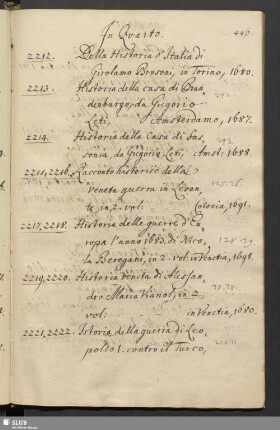 In Quarto.
449.
2212. Della Historia d'Italia di
Girolamo Brusoni, in Torino, 1680.
2213. Historia della casa di Bran
denburgo, da Gregorio
Leti, Amsterdamo, 1687.
292.
2214. Historia della Casa di Sas
sonia, da Gregorio Leti, Amst: 1688.
2215, 2216. Racconto historico della
veneta guerra in Levan
te in 2. vol. Colonia, 1691.
2217, 2218. Historia delle guerre d'Eu
ropa l'anno 1683. di Nico
la Beregani, in 2. vol: in Venetia, 1698.
128. 29
2219, 2220. Historia veneta di Alessan
dro Maria Vianoli, in 2
vol: in Venetia, 1680.
2221, 2222. Istoria della guerra di Leo
poldo I. contro il Turco,
SLUB